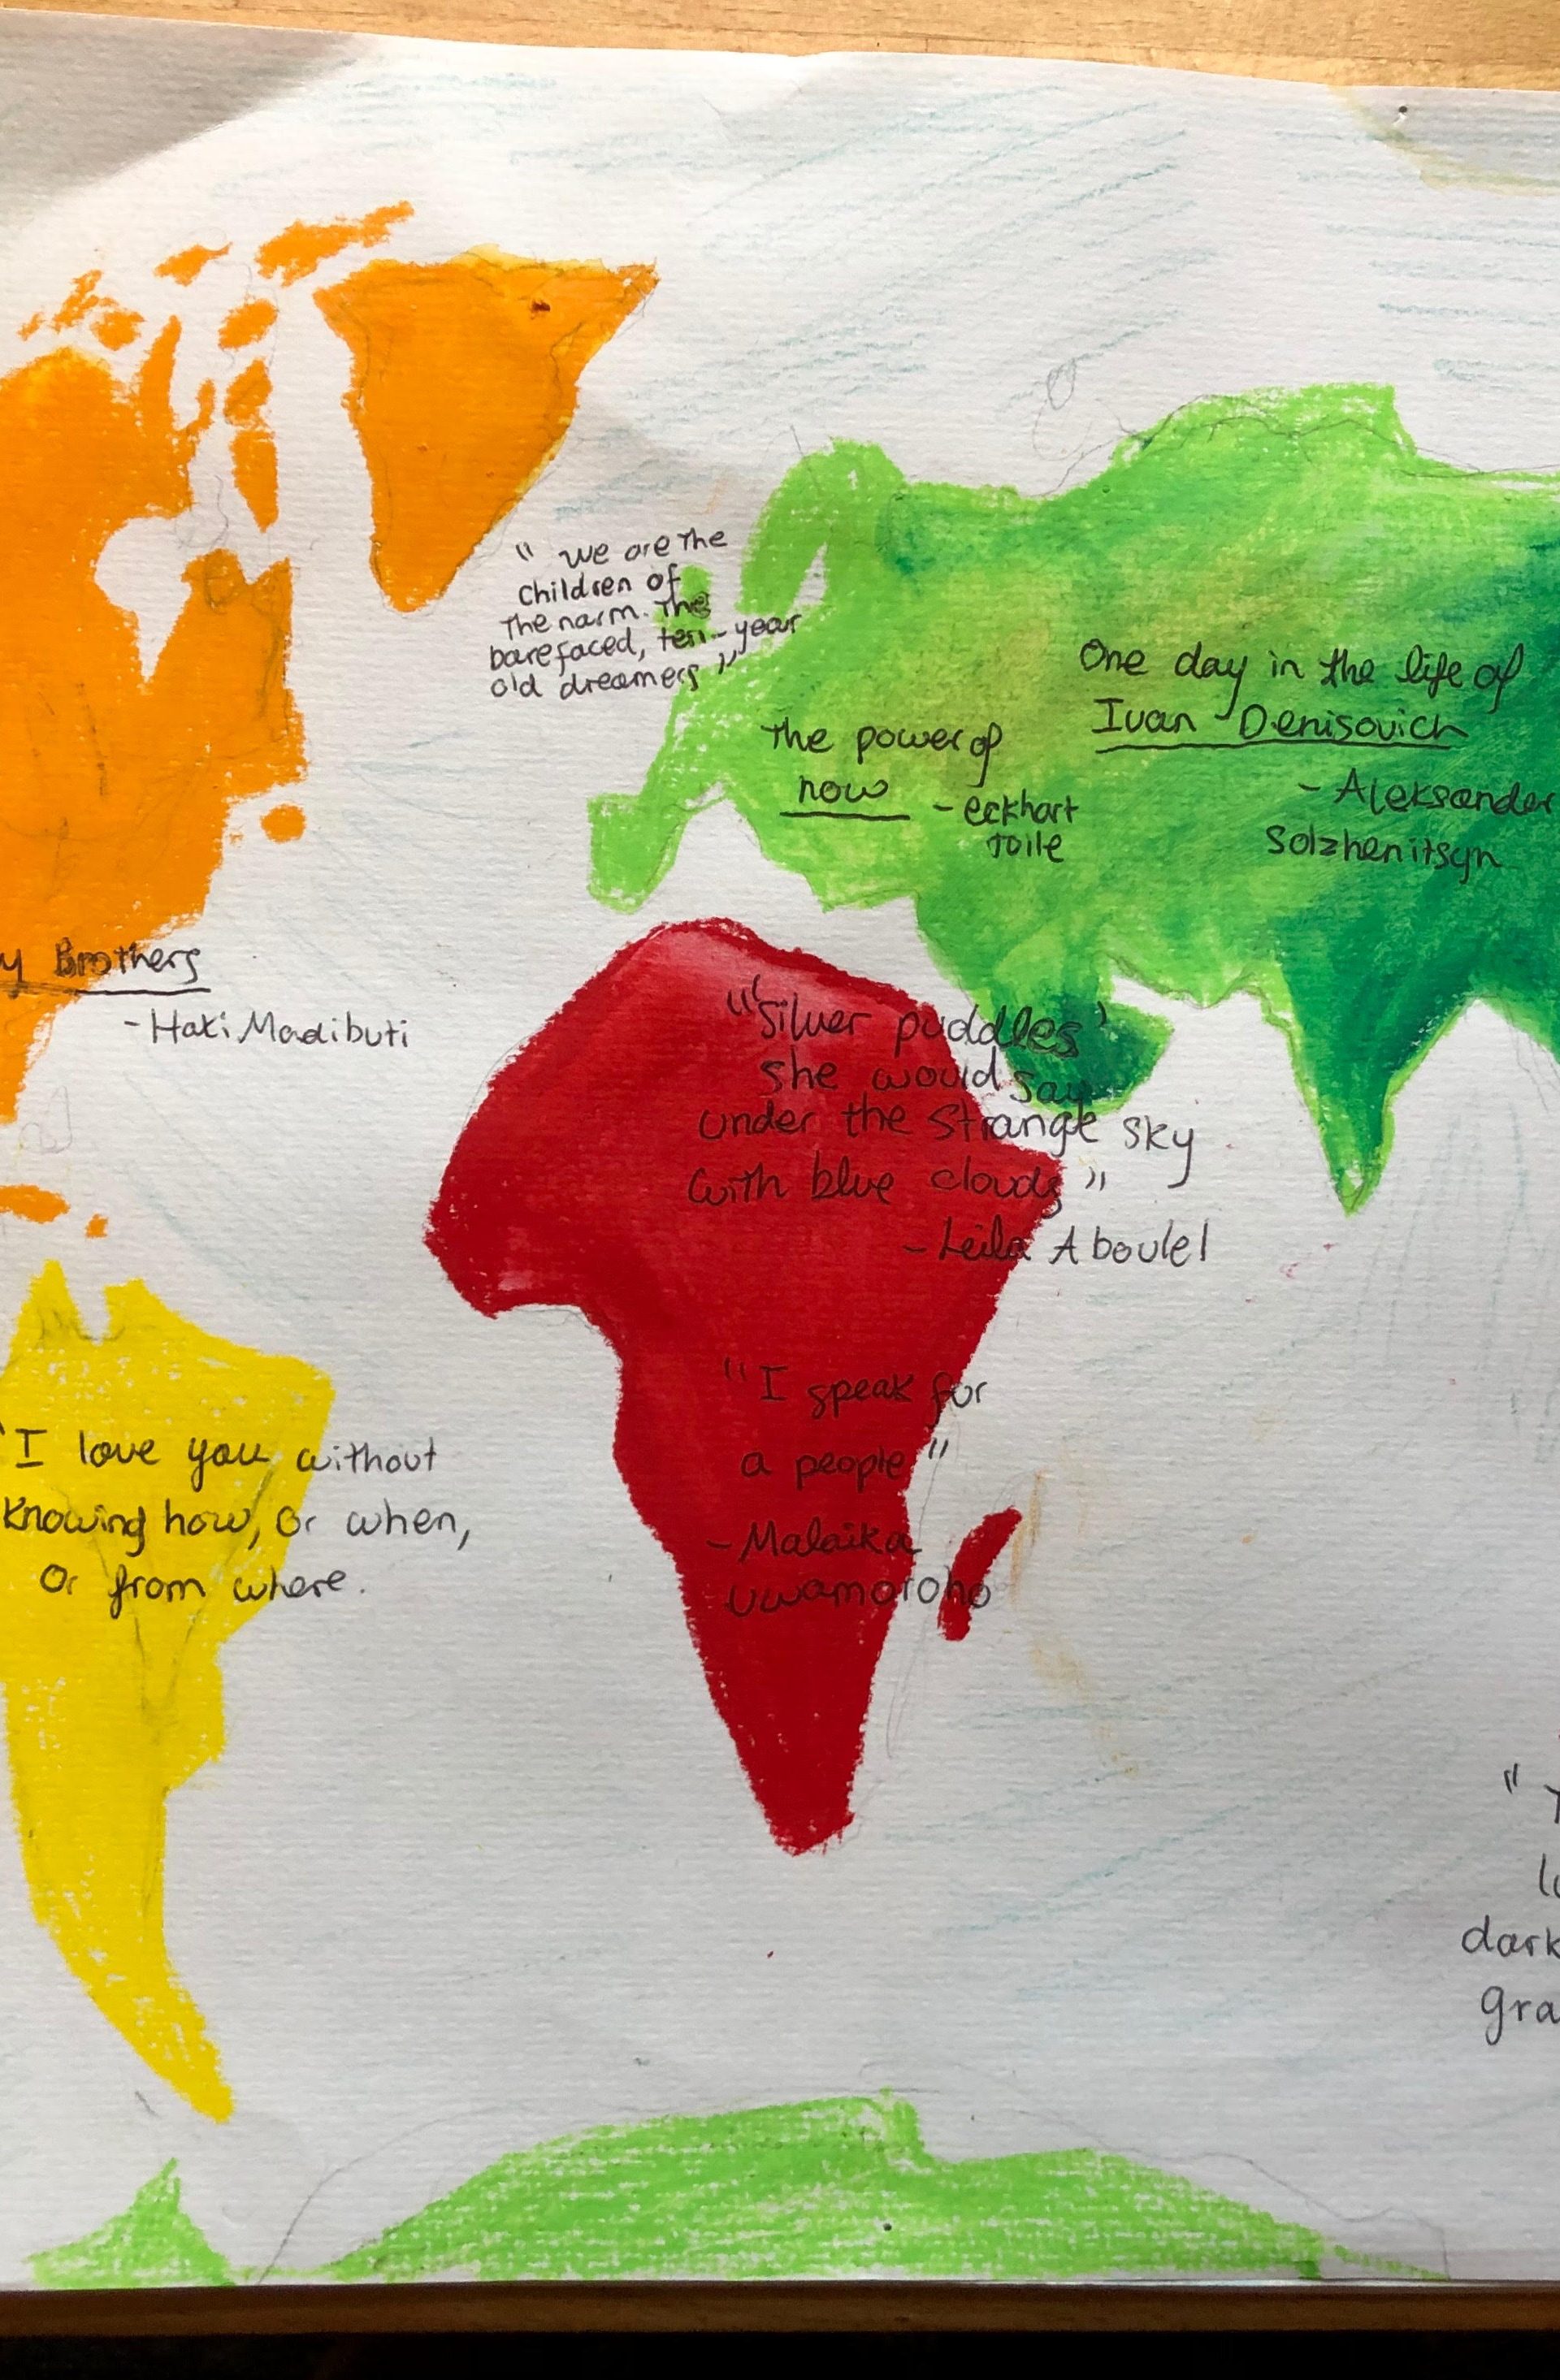 " we are the
children of
the narm. The
barefaced, ten-year
old dreamers "
The power of
now - eckhart
Tolle
One day in the life of
Ivan Denisovich
- Aleksander
Solzhenitsyn
y Brothers
- Haki Madibuti
"'Silver puddles'
she would say
under the strange sky
with blue clouds "
- Leila Aboulel
"I speak for
a people "
- Malaika
uwamoroho
"I love you without
knowing how, or when,
or from where.
dark
gra